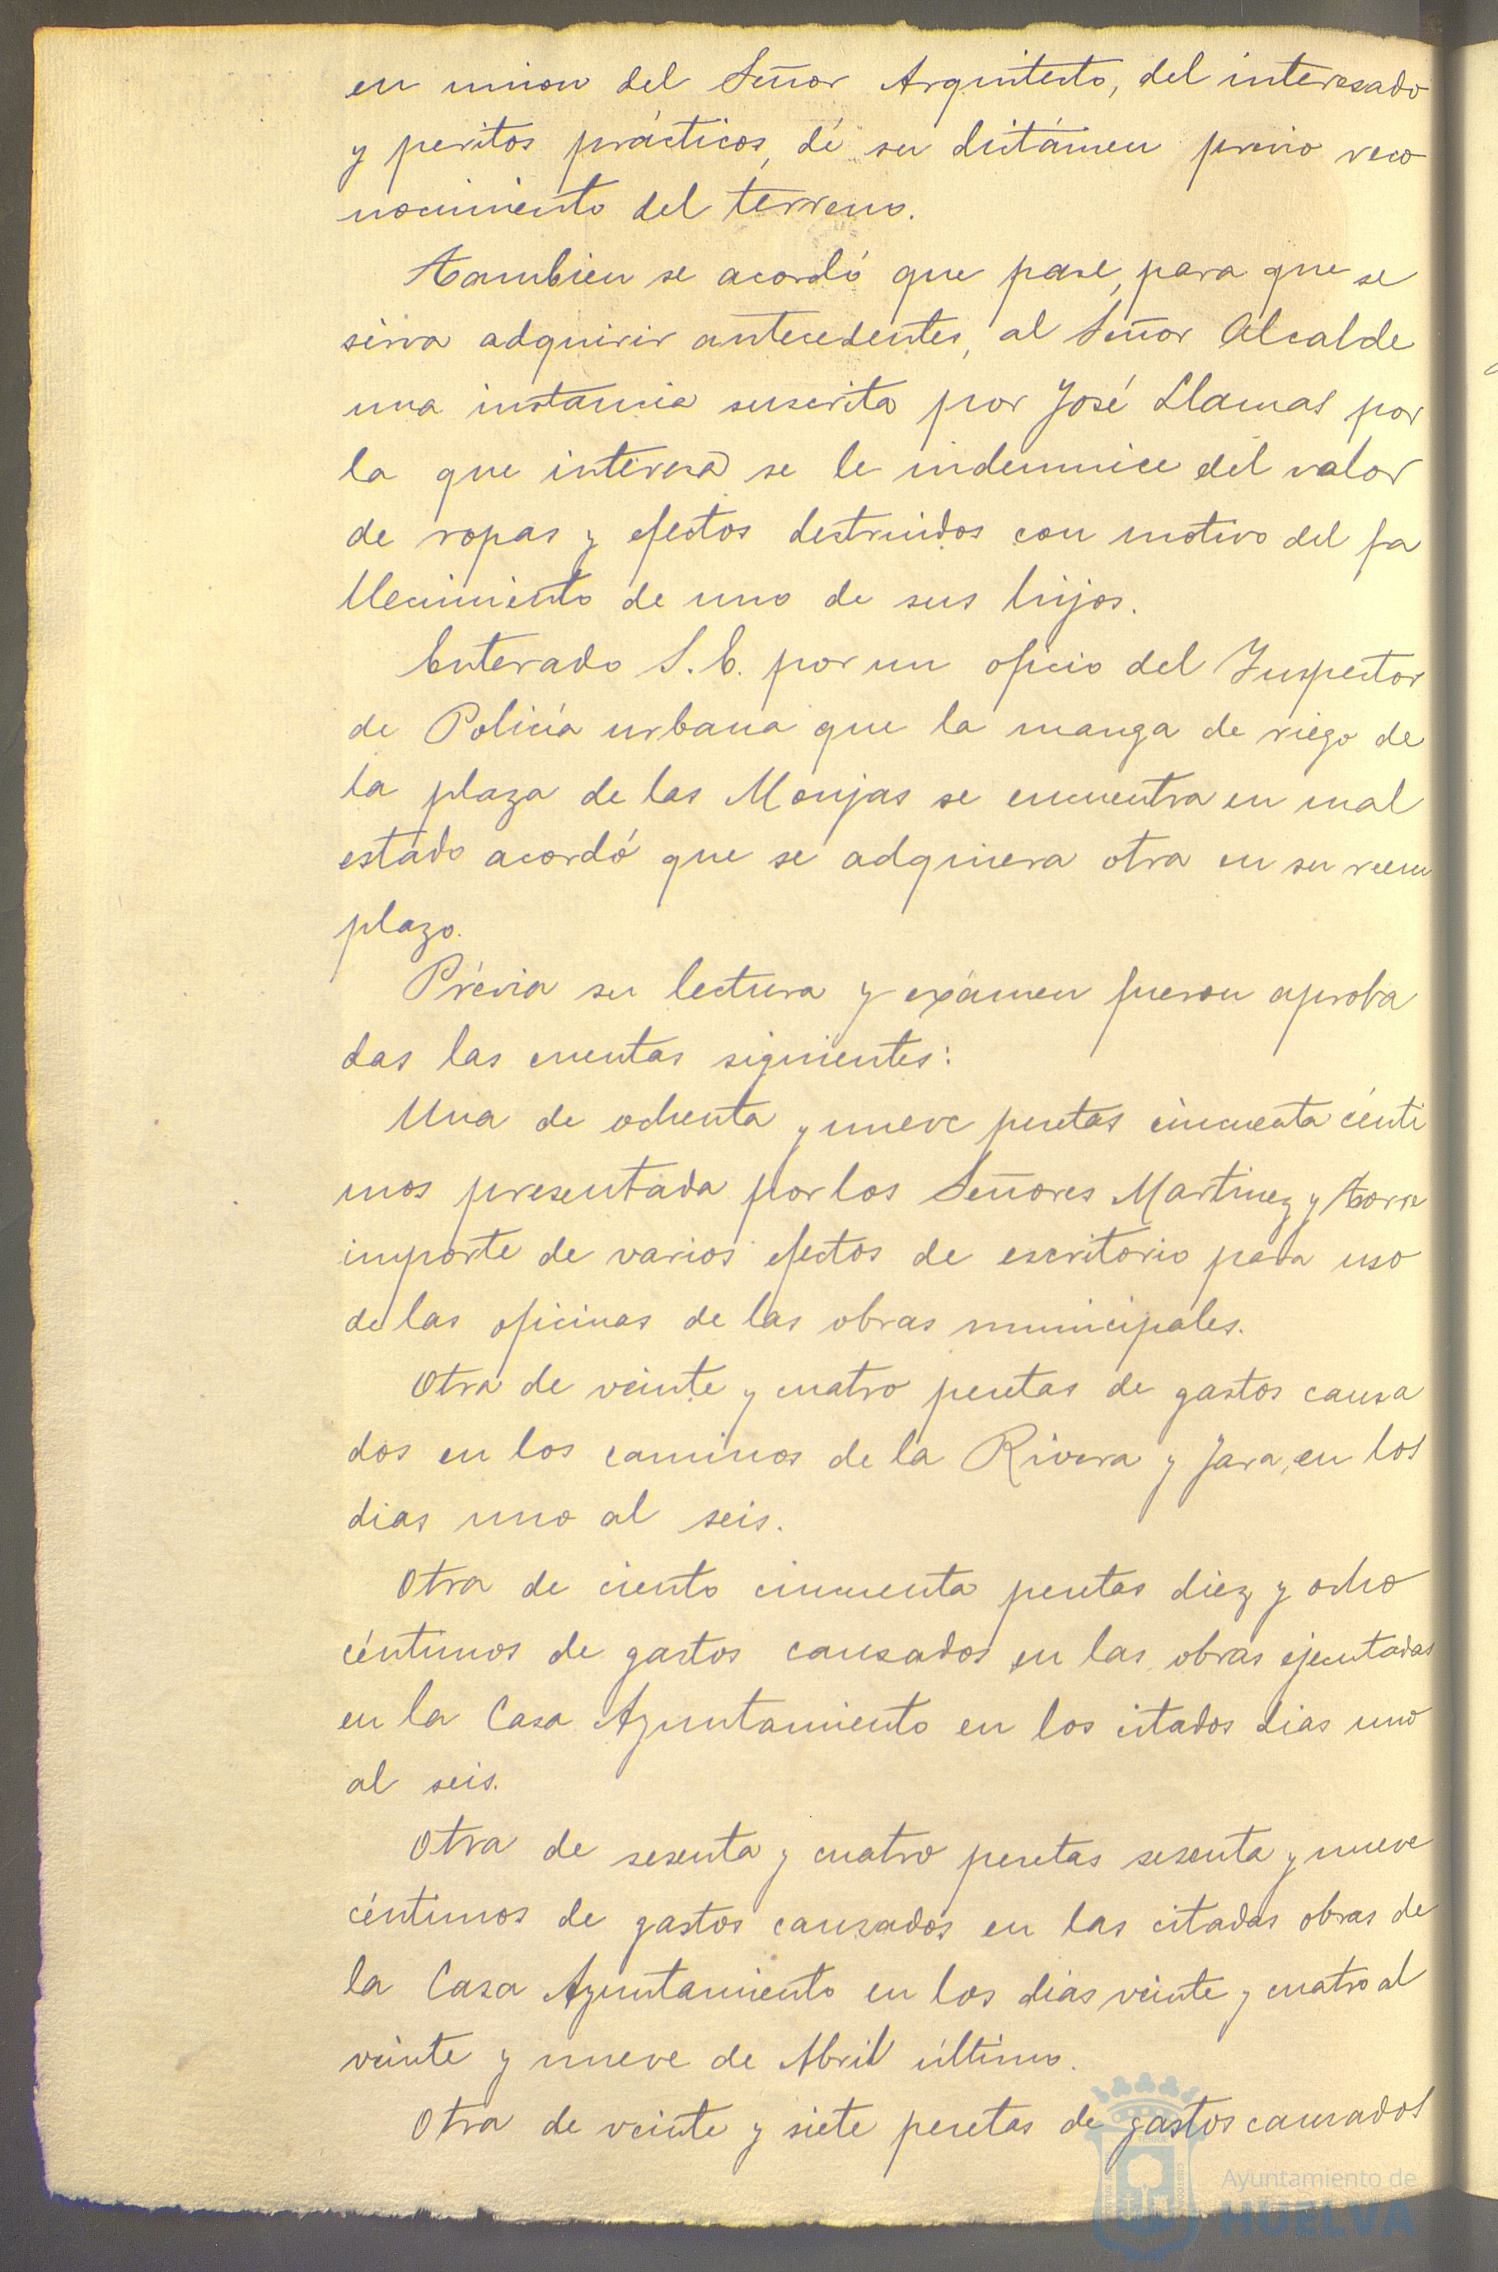 en union del Señor Arquitecto, del interesado
y peritos prácticos, dé su dictámen previo reco
nocimiento del terreno.
Tambien se acordó que pase, para que se
sirva adquirir antecedentes, al Señor Alcalde
una instancia suscrita por José Llamas por
la que interesa se le indemnice del valor
de ropas y efectos destruidos con motivo del fa
llecimiento de uno de sus hijos.
Enterado S.E. por un oficio del Inspector
de Policía urbana que la manga de riego de
la plaza de las Monjas se encuentra en mal
estado acordó que se adquiera otra en su reem
plazo.
Prévia su lectura y exámen fueron aproba
das las cuentas siguientes:
Una de ochenta y nueve pesetas cincuenta cénti
mos presentada por los Señores Martinez y Torre
importe de varios efectos de escritorio para uso
de las oficinas de las obras municipales.
Otra de veinte y cuatro pesetas de gastos causa
dos en los caminos de la Rivera y Jara, en los
dias uno al seis.
Otra de ciento cincuenta pesetas diez y ocho
céntimos de gastos causados en las obras ejecutadas
en la Casa Ayuntamiento en los citados dias uno
al seis.
Otra de sesenta y cuatro pesetas sesenta y nueve
céntimos de gastos causados en las citadas obras de
la Casa Ayuntamiento en los dias veinte y cuatro al
veinte y nueve de Abril último.
Otra de veinte y siete pesetas de gastos causados
Ayuntamiento de
HUELVA